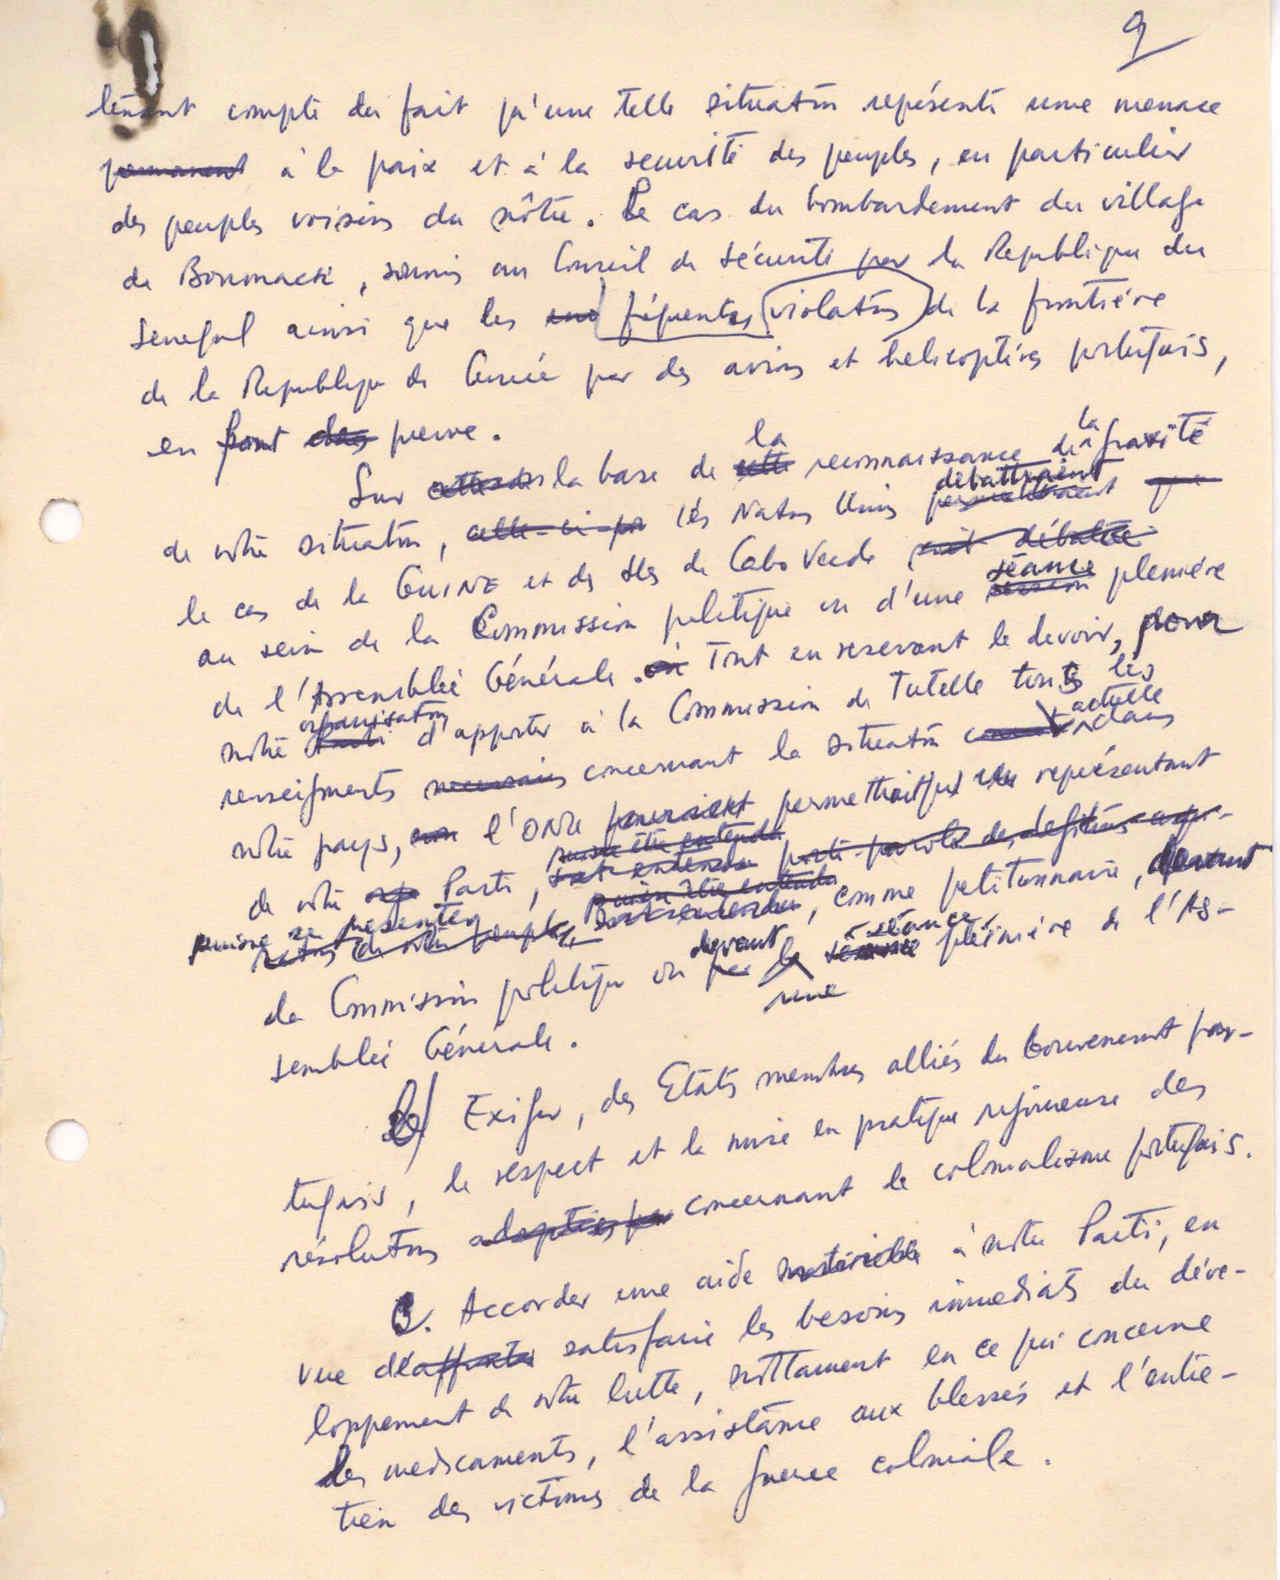 9
tenant compte du fait qu'une telle situation représente une menace
permanent à la paix et à la securité des peuples, en particulier
des peuples voisins du nôtre. Le cas du bombardement du village
de Bonomack, soumis au Conseil de Sécurité par la Republique du
Senegal ainsi que les fréquentes violations de la frontière
de la Republique de Guinée par des avions et helicoptères portugais,
en font des preuve.
Sur la base de la reconnaissance de la gravité
de notre situation, celle-ci les Nations Unies débattraient que
le cas de la GUINÉE et des Iles de Cabo Verde soit débattu
au sein de la Commission politique ou d'une séance plenière
de l'Assemblée Générale. Tout en reservant le devoir, pour
notre organisation d'apporter à la Commission de Tutelle touts les
renseigments necessaires concernant la situation actuelle dans
notre pays, l'ONU permettrait qu'un représentant
de notre Parti, soit entendu porte-parole des légitimes aspi-
puisse se presenter rations de notre peuple, puisse être entendu, comme petitionnaire, devant
la Commission politique ou devant par la une séance plénière de l'As-
semblée Générale.
b) Exiger, des Etats membres alliés du Gouvernement por-
tugais, le respect et la mise en pratique rigoureuse des
résolutions adoptées par concernant le colonialisme portugais.
3. Accorder une aide matérielle à notre Parti, en
vue d'affronter satisfaire les besoins immediats du déve-
loppement de notre lutte, nottament en ce qui concerne
les medicaments, l'assistance aux blessés et l'entre-
tien des victimes de la guerre coloniale.